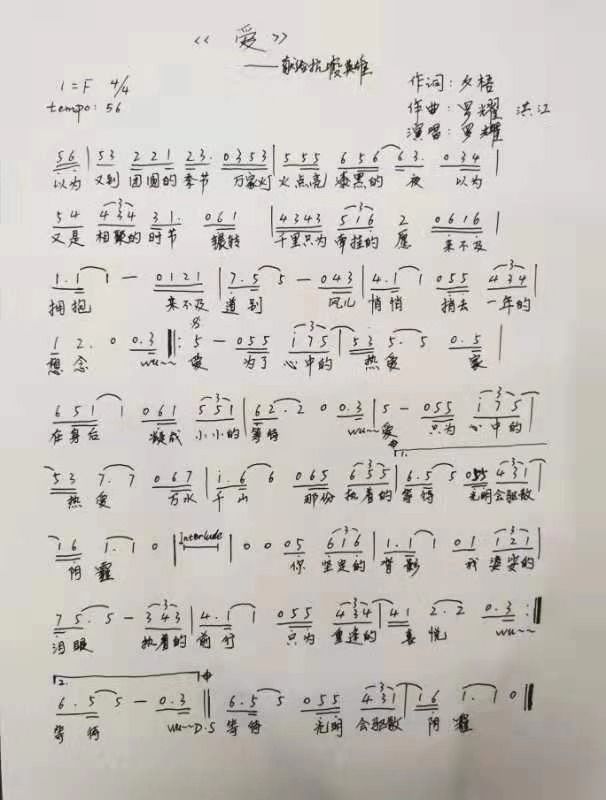 《爱》
——献给抗疫英雄
1=F 4/4
tempo: 56
作词: 夕梧
作曲: 罗耀 洪江
演唱: 罗耀
56 | 53 221 23. 0353 | 555 656 63. 034 |
以为 又到 团圆的 季节 万家灯 火点亮 漆黑的 夜 以为
54 434 31. 061 | 4343 516 2 0616 |
又是 相聚的 时节 辗转 千里只为 牵挂的 愿 来不及
1.1 1 — 0121 | 7.5 5 — 043 | 4.1 1 055 434 |
拥抱 来不及 道别 风儿 悄悄 捎去 一年的
1 2. 0 0.3 ‖: 5 — 055 i75 | 53 5.5 0.5 |
想念 wu~~ 爱 为了 心中的 热爱 家
651 1 061 551 | 62. 2 0 0.3 | 5 — 055 i75 |
在身后 凝成 小小的 等待 wu~~ 爱 只为 心中的
1.
53 7.7 067 | i.6 6 065 655 | 6.5 5 055 431 |
热爱 万水 千山 那份 执着的 等待 光明 会驱散
16 1.1 0 | Interlude | 0 0 05 616 | 1.1 1 01 121 |
阴霾 你 坚定的 背影 我 婆娑的
75. 5 — 343 | 4.1 1 055 434 | 41 2.2 0.3 :‖
泪眼 执着的 前行 只为 重逢的 喜悦 wu~~
2.
6.5 5 — 0.3 ‖ 6.5 5 055 431 | 16 1.1 0 ‖
等待 wu~~ D.S 等待 光明 会驱散 阴霾